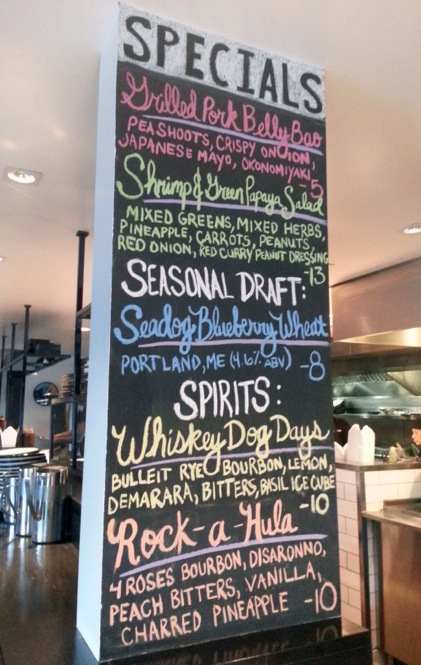 SPECIALS
Grilled Pork Belly Bao
PEA SHOOTS, CRISPY ONOION,
JAPANESE MAYO, OKONOMIYAKI
-5
Shrimp & Green Papaya Salad
MIXED GREENS, MIXED HERBS,
PINEAPPLE, CARROTS, PEANUTS,
RED ONION, RED CURRY PEANUT DRESSING
-13
SEASONAL DRAFT:
Seadog Blueberry Wheat
PORTLAND, ME (4.6% ABV) -8
SPIRITS:
Whiskey Dog Days
BULLEIT RYE BOURBON, LEMON,
DEMARARA, BITTERS, BASIL ICE CUBE
-10
Rock-a-Hula
4 ROSES BOURBON, DISARONNO,
PEACH BITTERS, VANILLA,
CHARRED PINEAPPLE -10